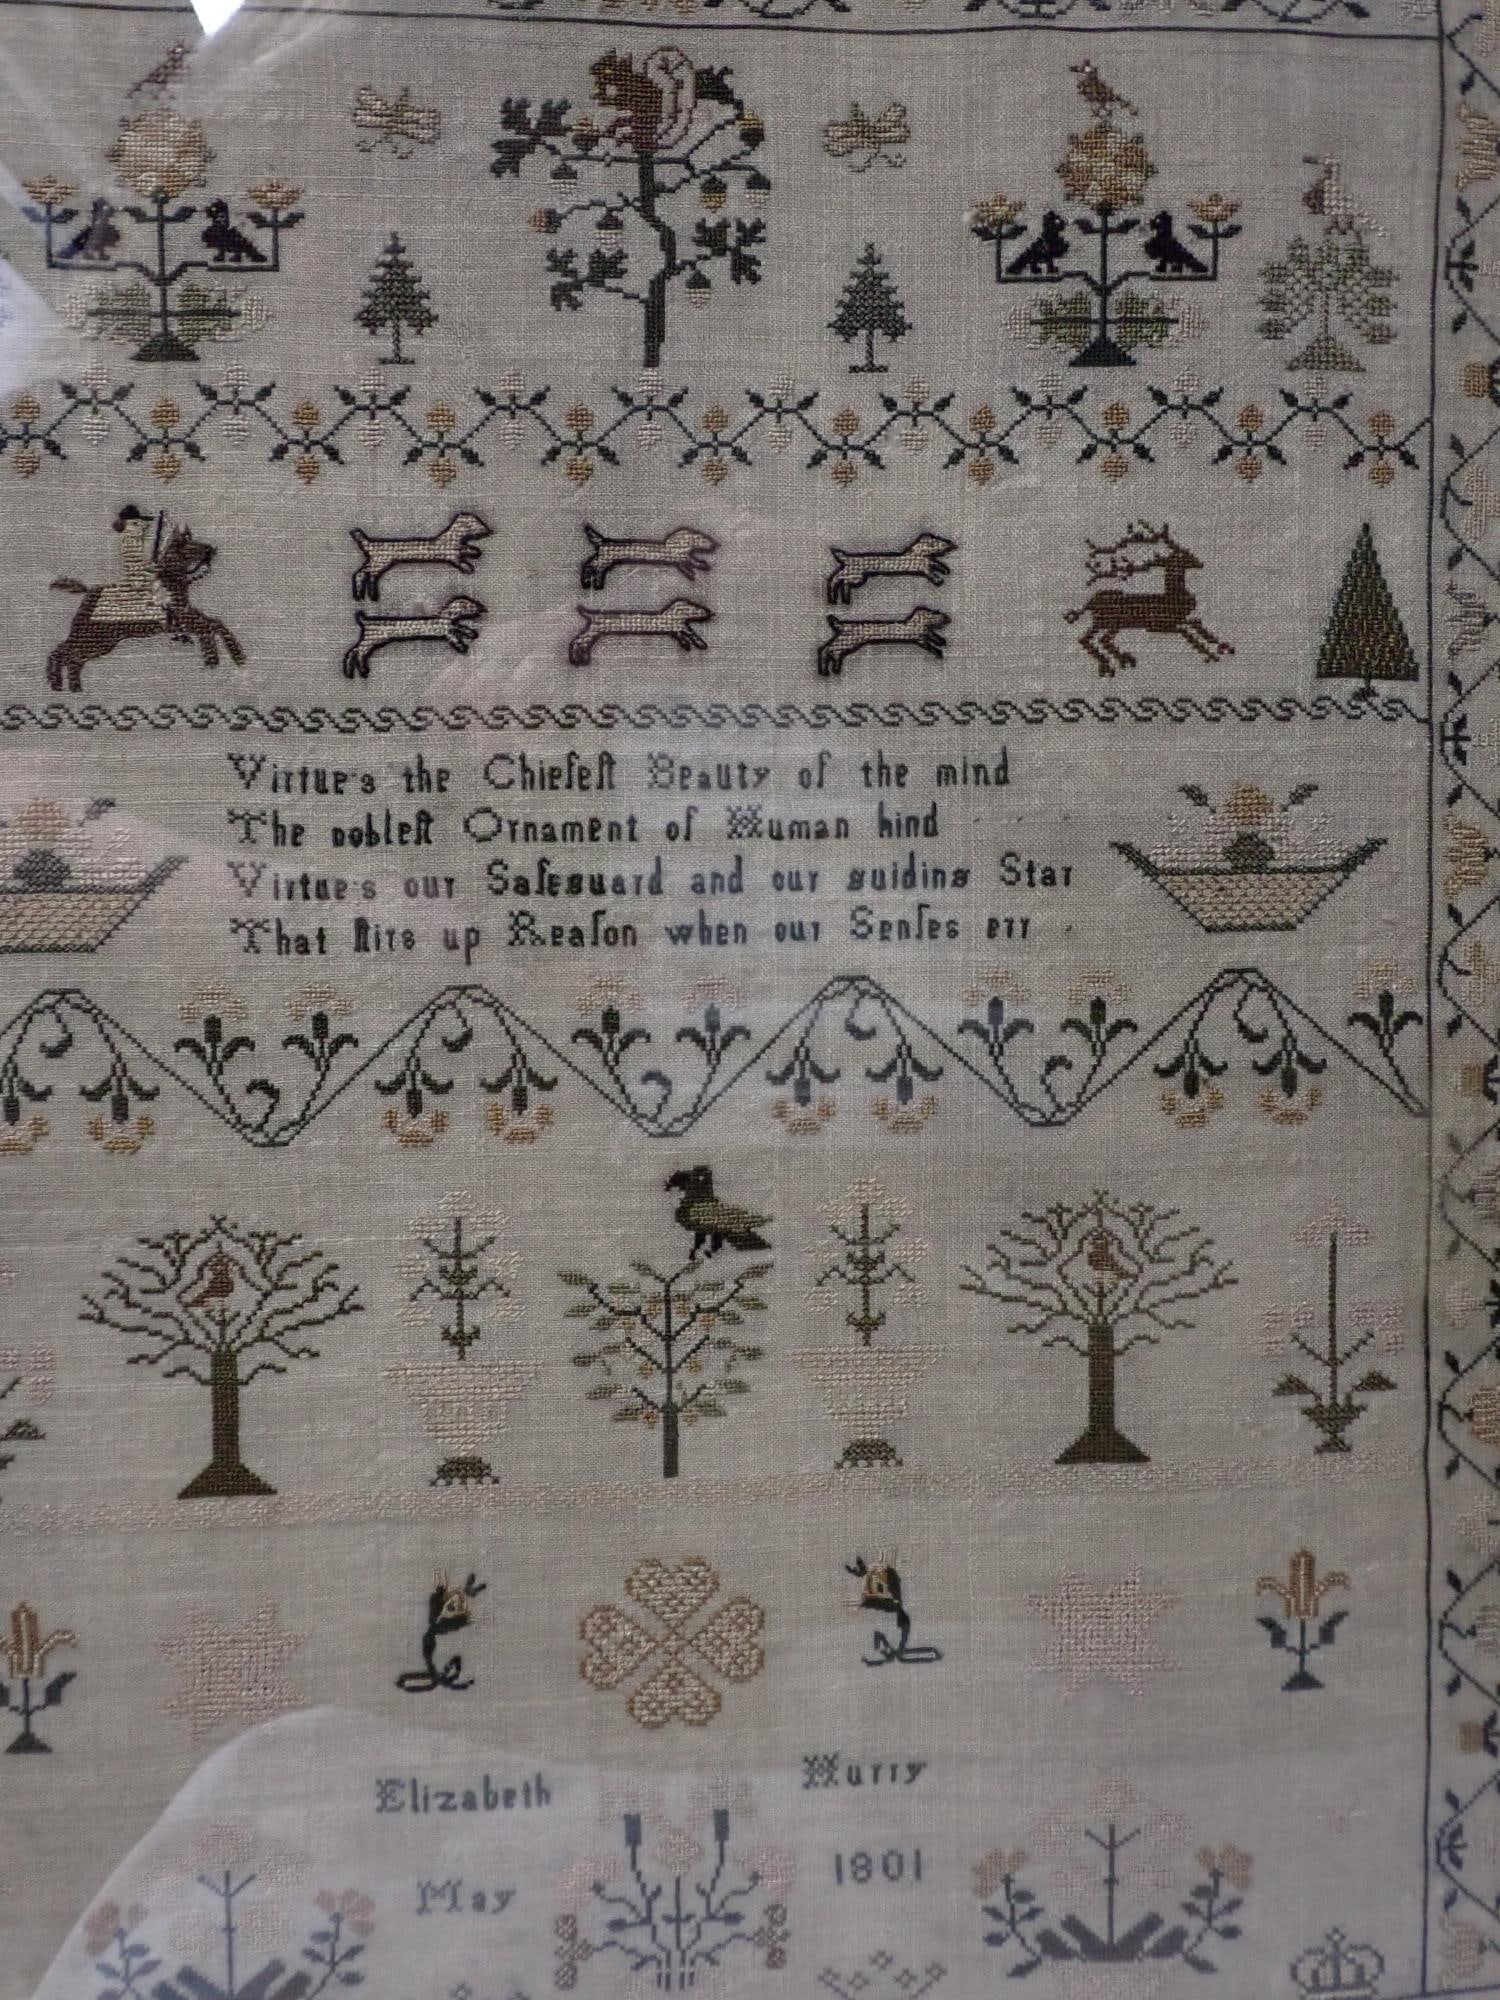 Virtue's the Chiefeſt Beauty of the mind
The nobleſt Ornament of Human kind
Virtue's our Safeguard and our guiding Star
That ſtirs up Reaſon when our Senſes err
Elizabeth Hurry
May 1801